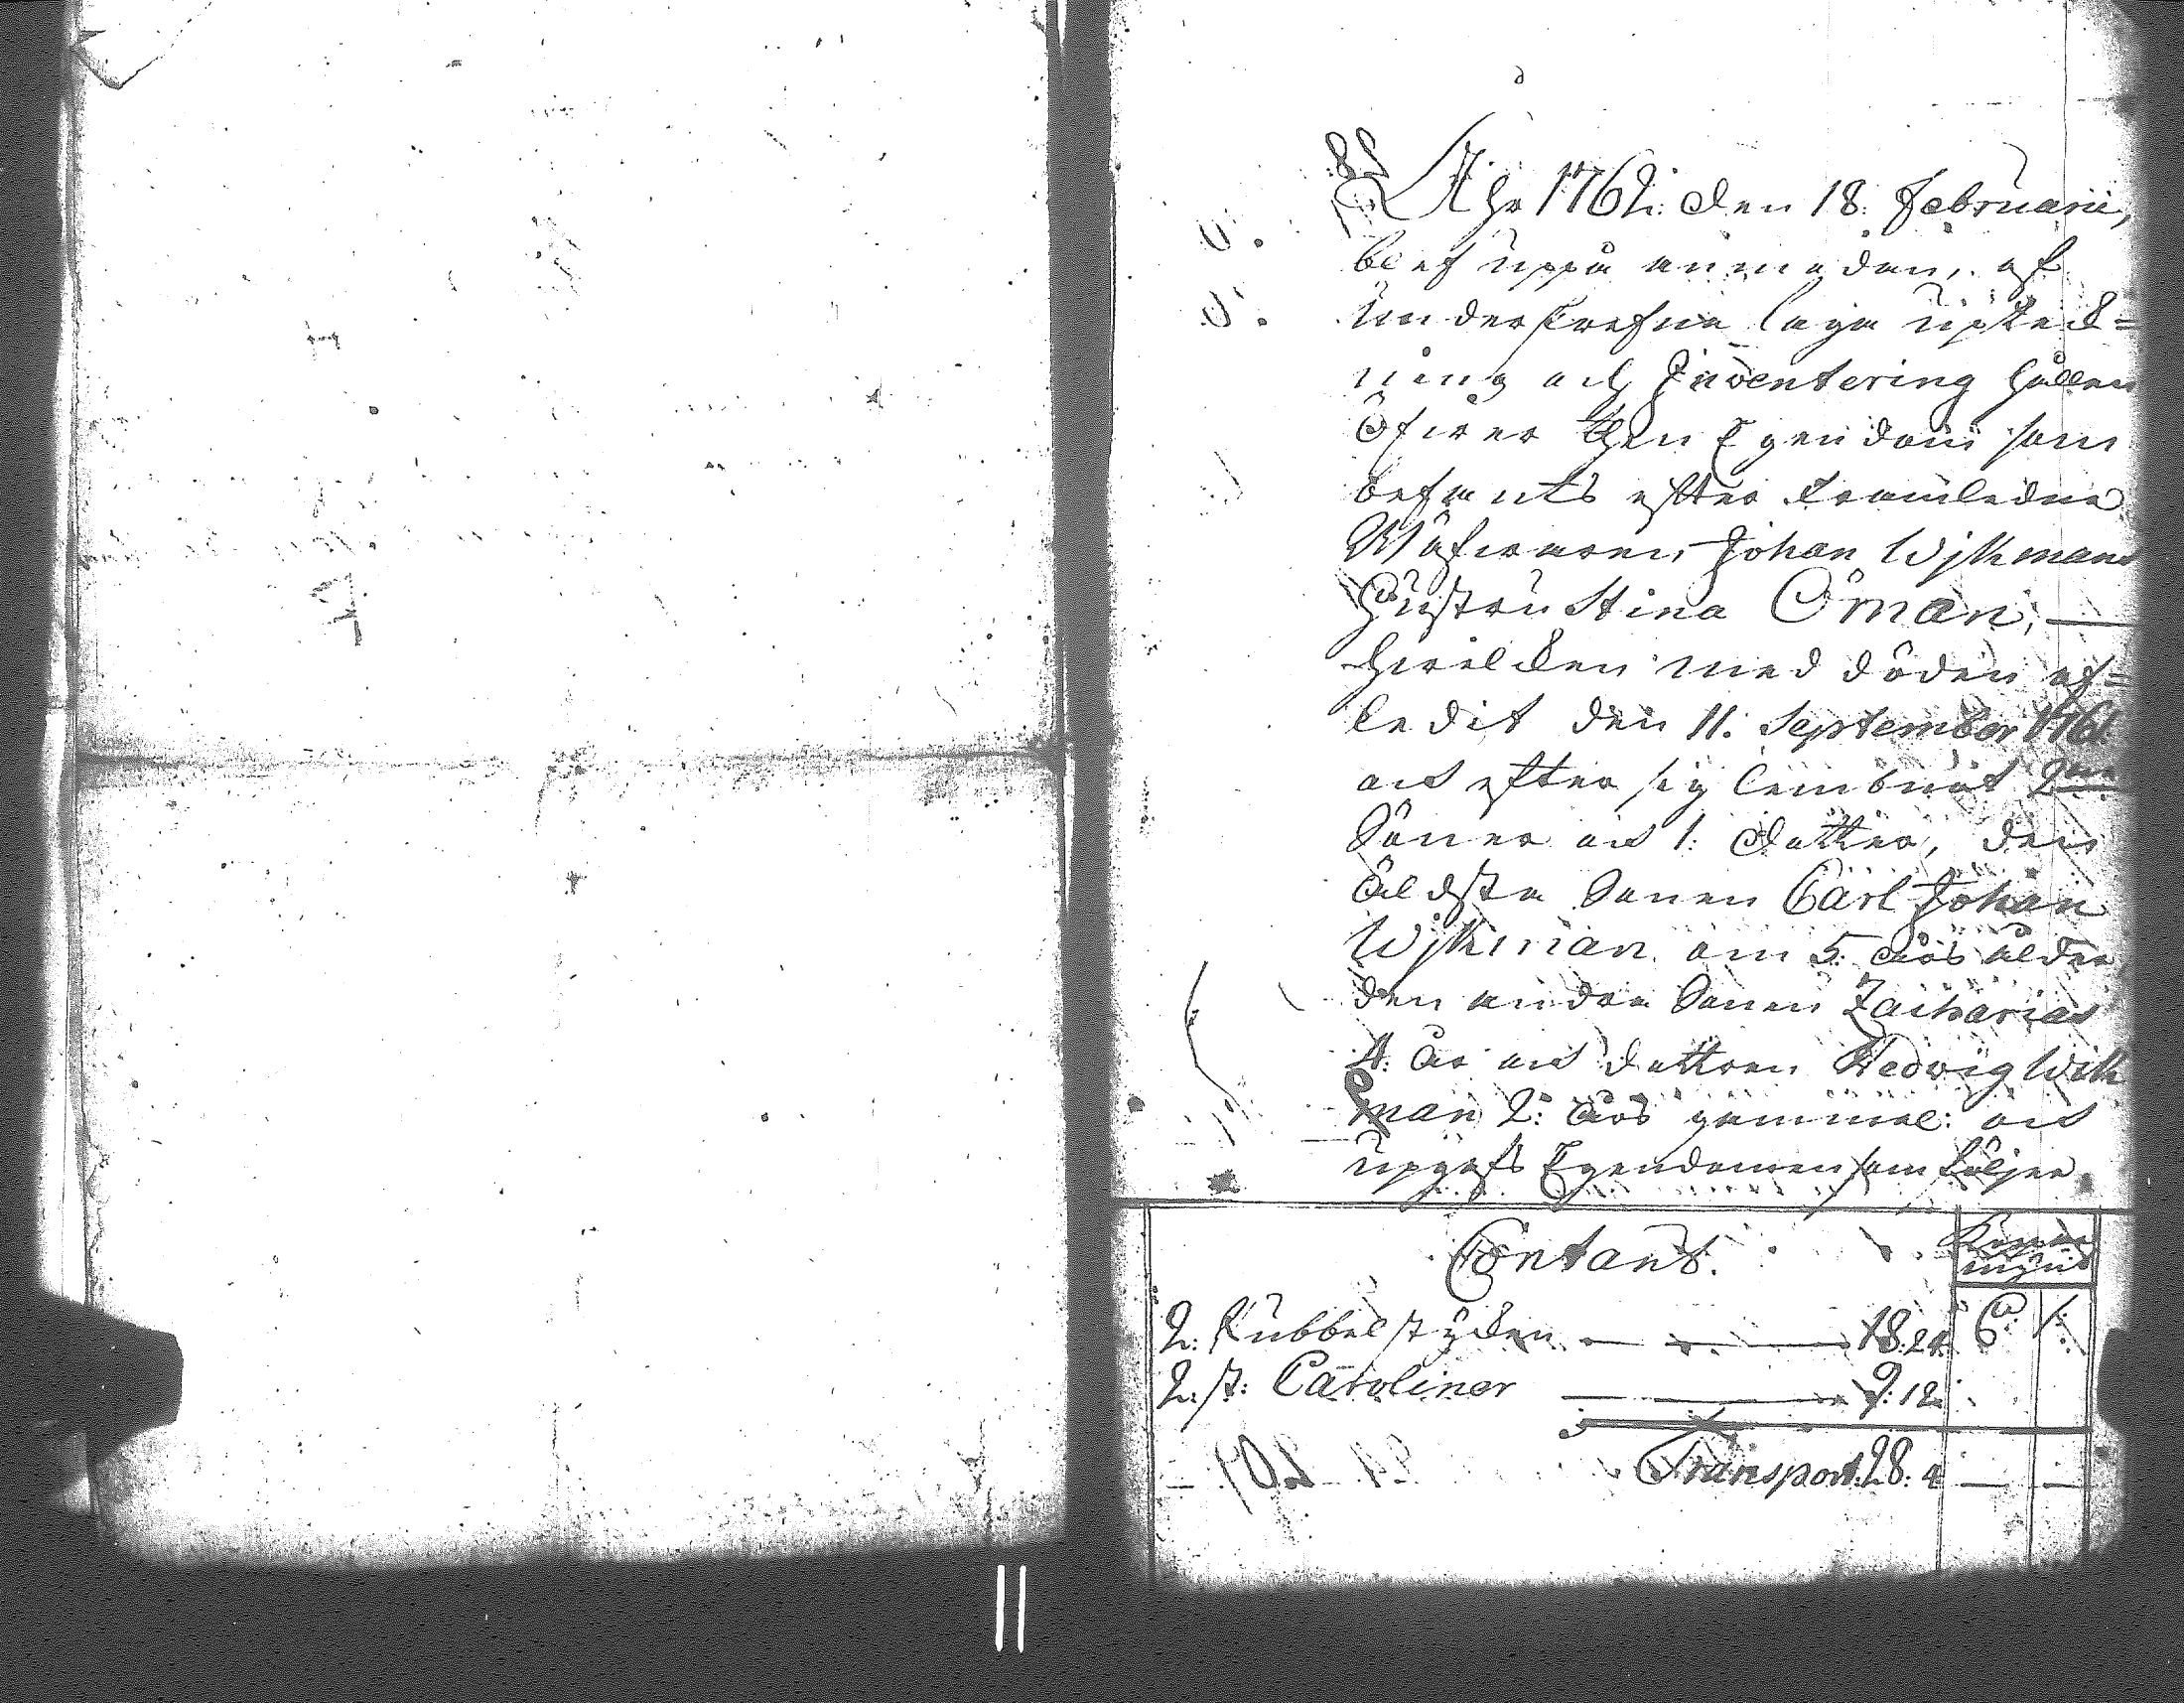 Åhr 1762: den 18: Februarii,
blef uppå anmodan, af
underskrefne laga upteck=
ning och Inventering hållen
öfwer then Egendom som
befants efter framledne
Johan Wikmans
Hustru Stina Öman,
hwilcken med döden af=
ledit den 11. September 1761
och efter sig lembnat 2ne
Söner och 1: dotter, den
äldsta Sonen Carl Johan
Wikman om 5: åhrs ålder
den andra Sonen Zacharias
4: åhr och dottren Hedwig Wik
man 2: åhrs gammal: och
upgafs Egendomen som följer.
Contant.
Koppar
mynt
2: Rubbelstycken 18: 24 6
2: st: Caroliner 9: 12
Transport. 28: 4